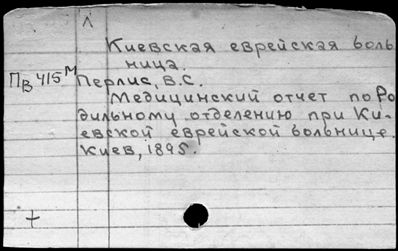 Киевская еврейская боль
ница.
Пв 415м Перлис, В.С.
Медицинский отчет по Ро
дильному отделению при Ки-
евской еврейской больнице.
Киев, 1895.